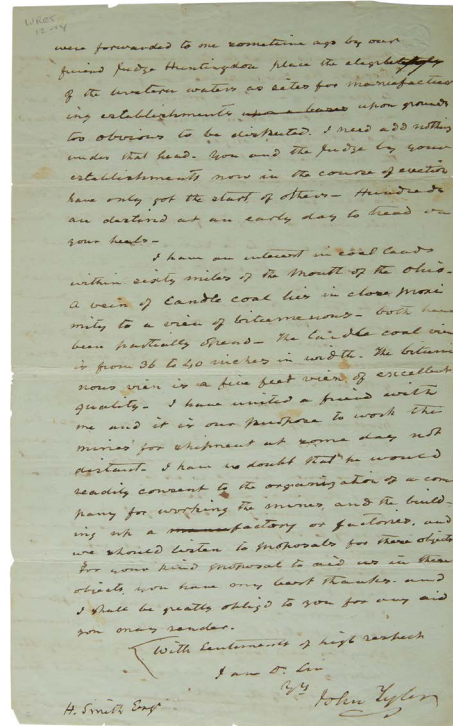 were forwarded to me sometime ago by our
friend Judge Huntingdon place the eligibility
of the western waters as sites for manufactur
ing establishments upon grounds
too obvious to be disputed. I need add nothing
under that head. You and the Judge by your
establishments now in the course of erection
have only got the start of others - Hundreds
are destind at an early day to tread on
your heels -
I have an interest in coal lands
within sixty miles of the mouth of the Ohio.
A vein of Candle coal lies in close proxi
mity to a vien of bitumenous - both have
been partially opened - The Candle coal vien
is from 36 to 40 inches in width. The bitumi
nous vien is a five feet vien of excellent
quality - I have united a friend with
me and it is our purpose to work the
mines for shipment at some day not
distant. I have no doubt that he would
readily consent to the organization of a com
pany for working the mines, and the build-
ing up a factory or factories, and
we should listen to proposals for these objects
For your kind proposal to aid us in these
objects you have my best thanks. and
I shall be greatly obligd to you for any aid
you may render.
With Sentiments of high respect
I am Dr Sir
Yrs John Tyler
H. Smith Esqr